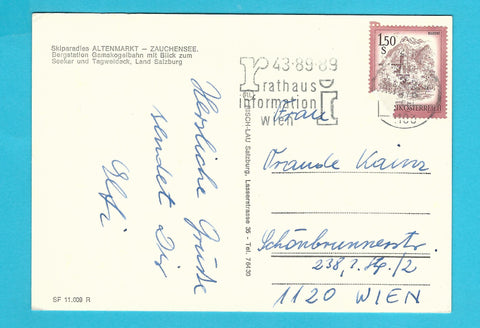 Skiparadies ALTENMARKT – ZAUCHENSEE.
Bergstation Gamskogelbahn mit Blick zum
Seekar und Tagweideck, Land Salzburg
Herzliche Grüße
sendet Dir
Elfi
SF 11.009 R
LAU Salzburg, Lasserstrasse 35 - Tel. 76430
43-89-89
rathaus
information
wien
1,50
S
Frau
Traude Kainz
Schönbrunnerstr.
238, 2. Stg. /2
1120 WIEN